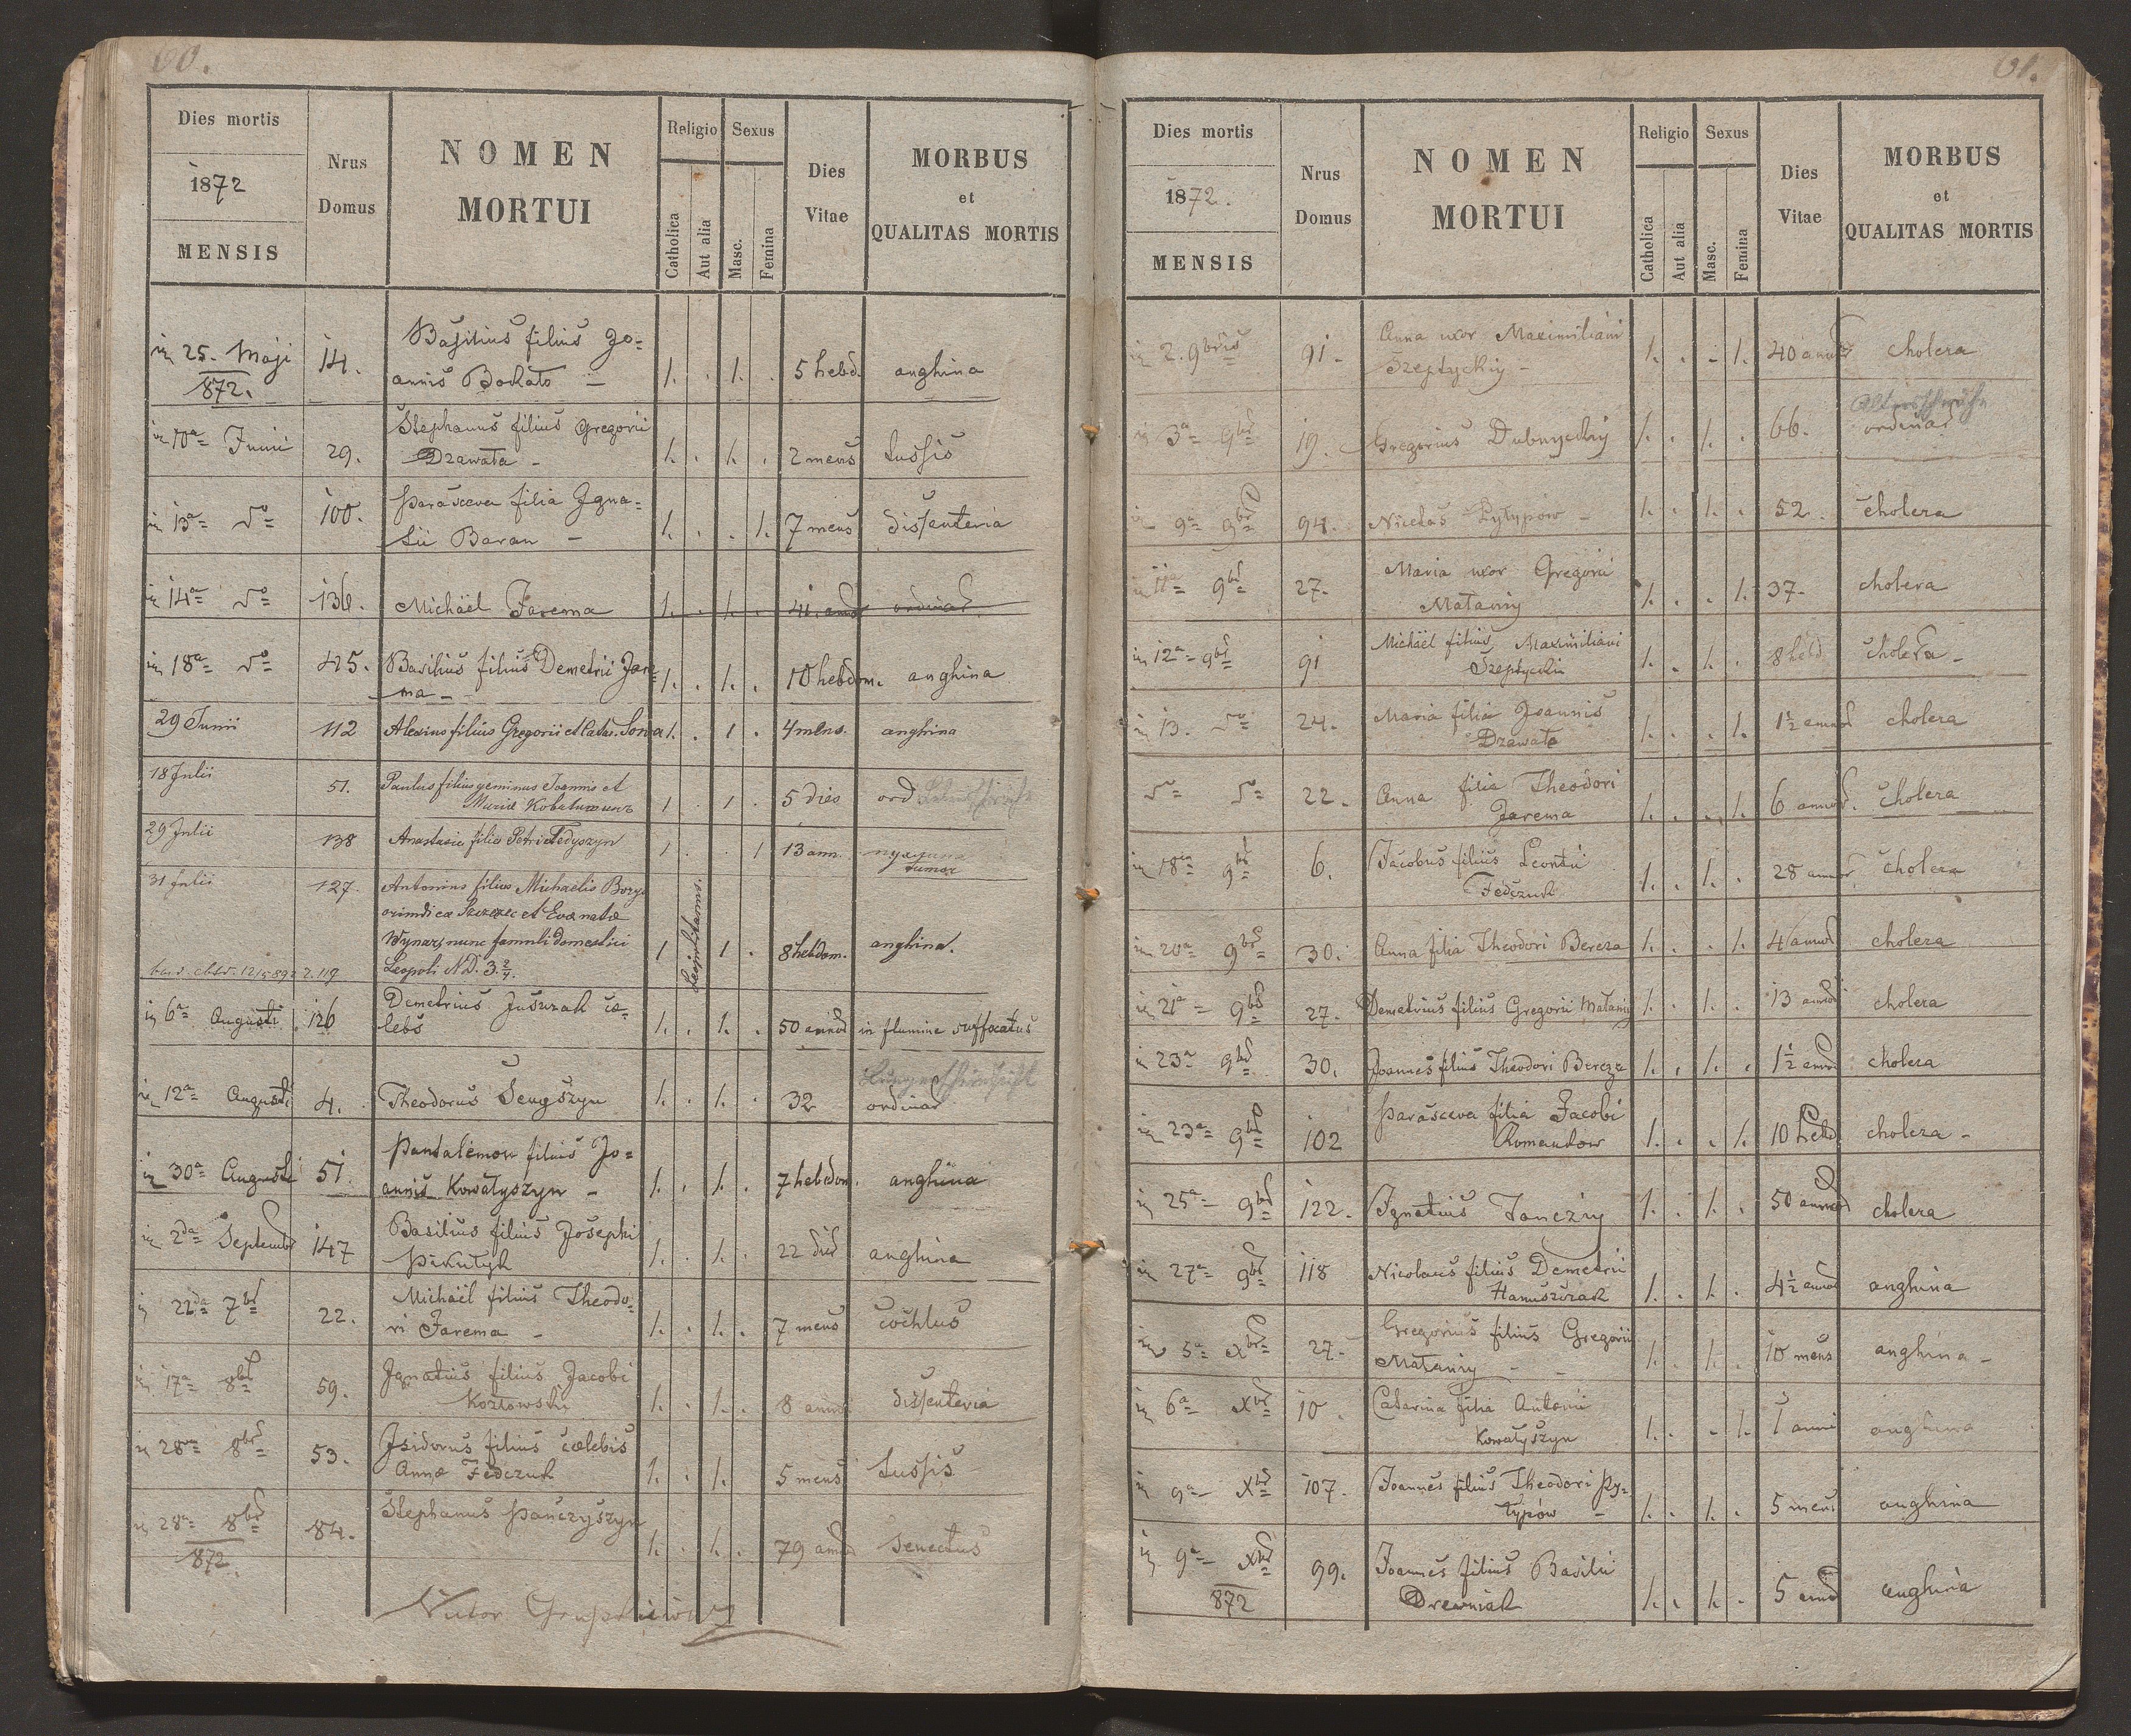 60.
Dies mortis
1872
MENSIS
Nrus
Domus
NOMEN
MORTUI
Religio
Catholica
Aut alia
Sexus
Masc.
Femina
Dies
Vitae
MORBUS
et
QUALITAS MORTIS
25. Maji 872. 14. Basilius filius Jo=
annis 1. . 1. . 5 hebd. anghina
10a Junii 29. Stephanus filius Gregorii
Dzawała - 1. . 1. . 2 mens tussis
13a do 100. Parasceva filia Igna=
tii Baran - 1. . . 1. 7 mens dissenteria
14a do 136. Michaël Jarema 1. . 1. . 41. ann ordinar
18a do 45. Basilius filius Demetrii Jare=
ma - 1. . 1. . 10 hebdom. anghina
29 Junii 112 Alexius filius Gregorii et Cath. 1. . 1 . 4 mens. anghina
18 Julii 51. Paulus filius geminus Joannis et
Mariæ 1 . 1 . 5 dies ord
29 Julii 138 Anastasia filia Petri Fedyszyn 1 . . 1 13 ann.
tumor
31 Julii 127. Antonius filius Michaelis
et Evæ natæ
nunc famuli domestici
Leopoli N.D. 3. 2/4. 1 1 . 8 hebdom. anghina.
6a Augusti 126 Demetrius Juszczak cæ=
lebs 1. . 1. . 50 annor in flumine suffocatus
12a Augusti 4. Theodorus Sengszyn 1. . 1. . 32 ordinar
30a Augusti 51. Pantalemon filius Jo=
annis Kowałyszyn - 1. . 1. . 7 hebdom. anghina
2da Septembr 147 Basilius filius Josephi
Pikułyk 1. . 1. . 22 dies anghina
22da 7br 22. Michaël filius Theodo=
ri Jarema - 1. . 1. . 7 mens cochlus
17a 8br 59. Ignatius filius Jacobi
Kozłowski 1. . 1. . 8 annor dissenteria
28a 8br 53. Isidorus filius cælebis
Annæ Fedczuk 1. . 1. 5 mens tussis
28a 8br 872. 84. Stephanus Panczyszyn 1. . 1. . 79 annor senectus
61.
Dies mortis
1872.
MENSIS
Nrus
Domus
NOMEN
MORTUI
Religio
Catholica
Aut alia
Sexus
Masc.
Femina
Dies
Vitae
MORBUS
et
QUALITAS MORTIS
2. 9bris 91. Anna uxor Maximiliani
Szeptyckiy - 1. . - 1. 40 annor cholera
Altersschwäche
3a 9br 19. Gregorius Dubnyckiy 1. . 1. . 66. ordinar
9a 9br 94. Nicetas Pytypów - 1. . 1. . 52. cholera
11a 9br 27. Maria uxor Gregorii
Matwiy 1. . . 1. 37. cholera
12a 9br 91 Michaël filius Maximiliani
Szeptycki 1. . 1. . 8 hebd cholera -
13. do 24. Maria filia Joannis
Dzawała 1. . . 1. 1½ annor cholera
do do 22. Anna filia Theodori
Jarema 1. . . 1. 6 annor. cholera
18a 9br 6. Jacobus filius Leontii
Fedczuk 1. . 1. . 28 annor cholera
20a 9br 30. Anna filia Theodori Bereza 1. . . 1. 4 annor cholera
21a 9br 27. Demetrius filius Gregorii Matwiy 1. . 1. . 13 annor cholera
23a 9br 30. Joannes filius Theodori Bereza 1. . 1. . 1½ annor cholera
23a 9br 102 Parasceva filia Jacobi
Romanow 1. . . 1. 10 hebd cholera -
25a 9br 122. Ignatius Janeziy 1. . 1. . 50 annor cholera
27a 9br 118 Nicolaus filius Demetrii
Hanuszczak 1. . 1. . 4½ annor anghina
5a Xbr 27. Gregorius filius Gregorii
Matwiy - 1. . 1. . 10 mens anghina -
6a Xbr 10. Catarina filia Antonii
Kowałyszyn 1. . - 1. 1 anni anghina
9a Xbr 107. Joannes filius Theodori Py=
typów - 1. . 1. . 5 mens anghina
9a Xbr 872 99. Joannes filius Basilii
Drewniak 1. . 1. . 5 annor anghina